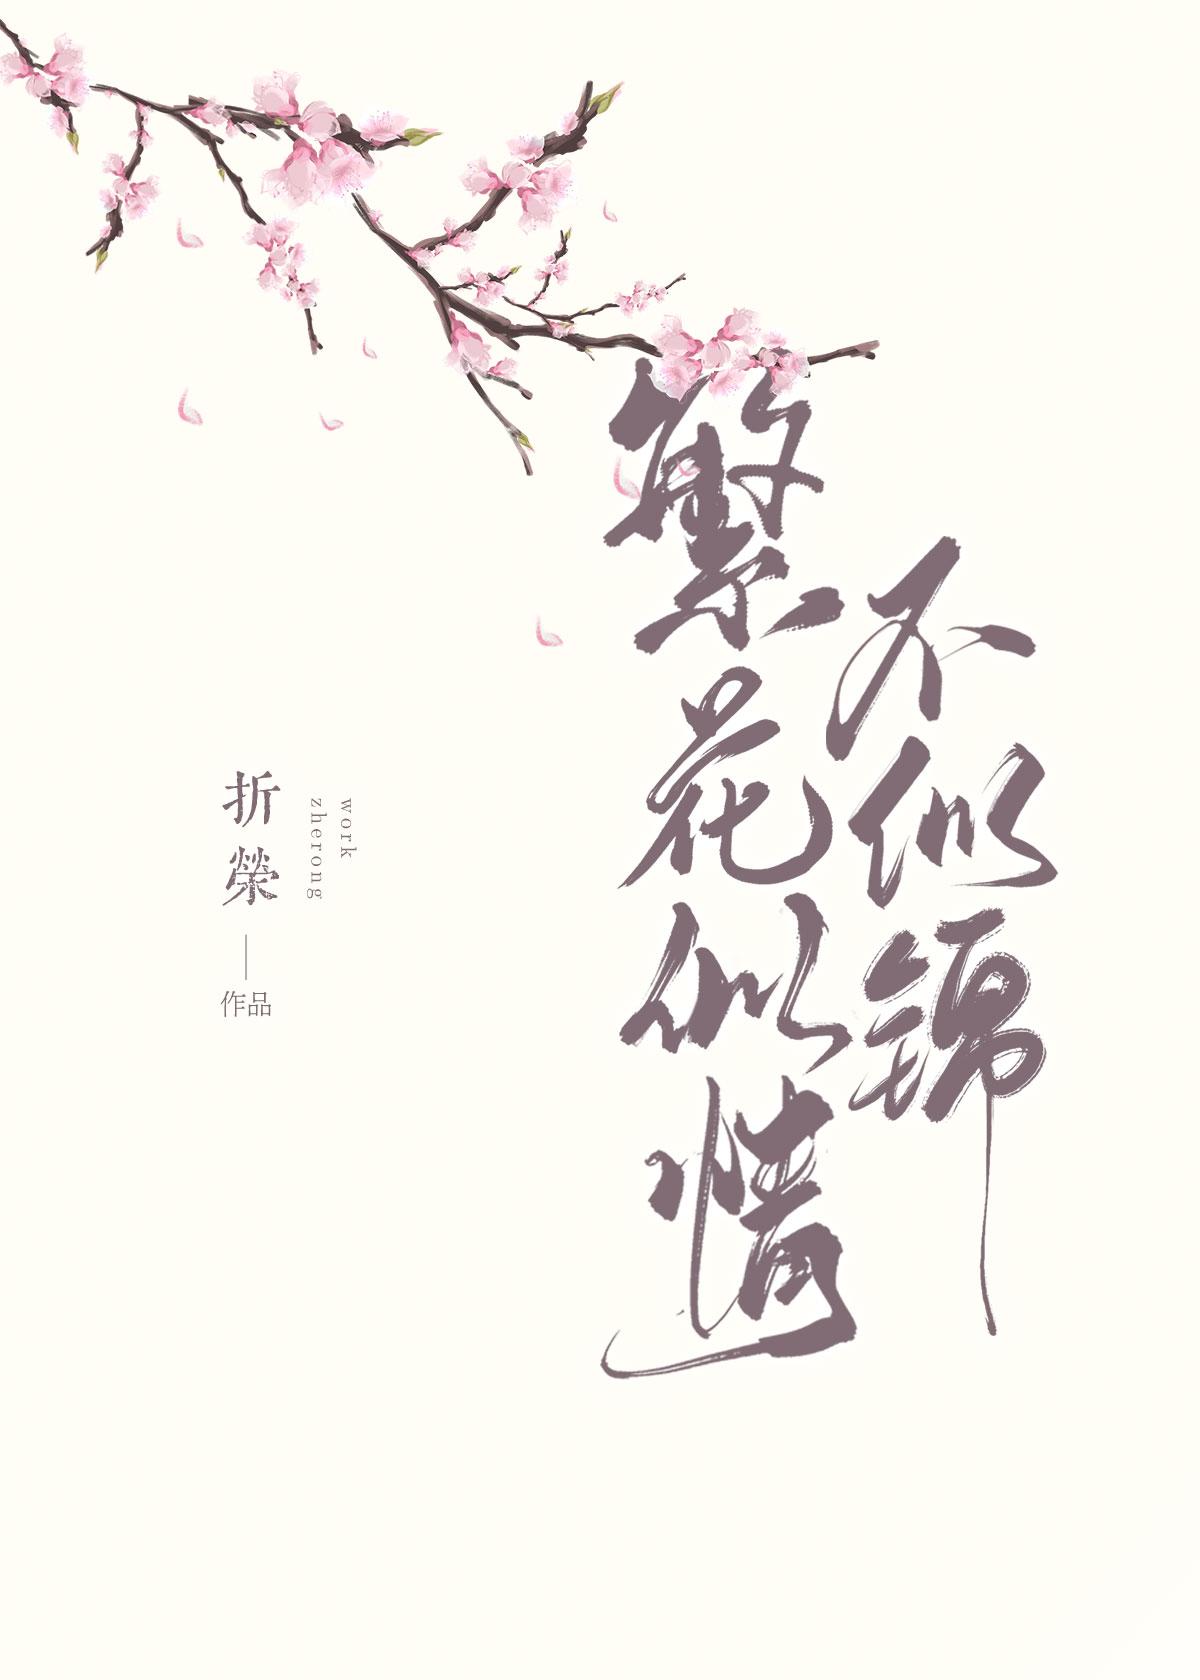 不似锦
繁花似情
work
zherong
折榮
作品